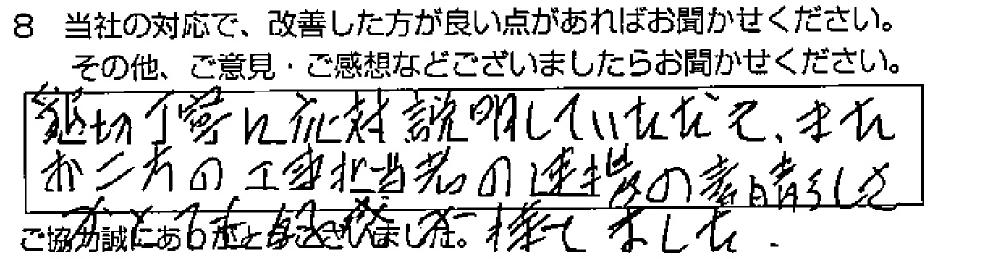 8 当社の対応で、改善した方が良い点があればお聞かせください。
その他、ご意見・ご感想などございましたらお聞かせください。
懇切丁寧に応対説明していただきて、また
お二方の工事担当者の連携の素晴らしさ
ご協力誠にありがとうございました。
ました.